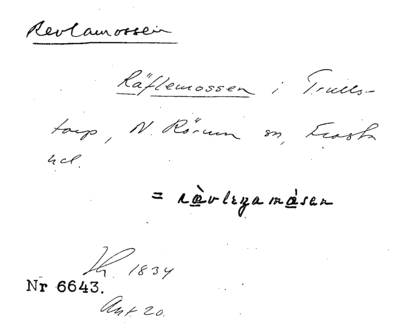 Revlamossen
Räflemossen i Trulls-
torp, N. Rörum sn, Frosta
hd.
= ràvleyamåsen
1834
Nr 6643.
Ant. 20.